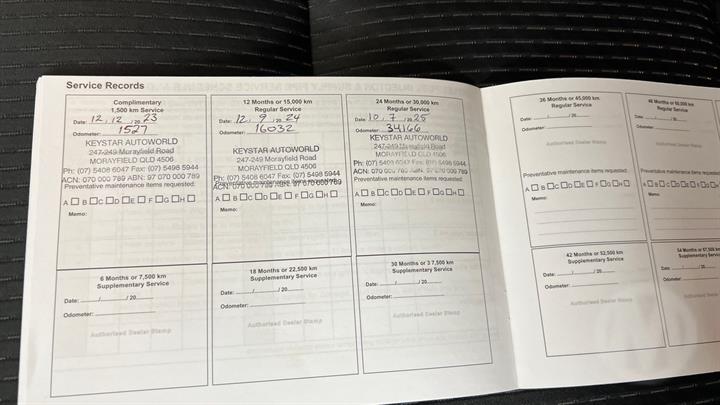 Service Records
Complimentary
1,500 km Service
Date: 12, 12 / 20 23
Odometer: 1527
KEYSTAR AUTOWORLD
247-249 Morayfield Road
MORAYFIELD QLD 4506
Ph: (07) 5408 6047 Fax: (07) 5498 5944
ACN: 070 000 789 ABN: 97 070 000 789
Preventative maintenance items requested:
A □ B □ C □ D □ E □ F □ G □ H □
Memo:
12 Months or 15,000 km
Regular Service
Date: 12, 9 / 20 24
Odometer: 16032
KEYSTAR AUTOWORLD
247-249 Morayfield Road
MORAYFIELD QLD 4506
Ph: (07) 5408 6047 Fax: (07) 5498 5944
ACN: 070 000 789 ABN: 97 070 000 789
A □ B □ C □ D □ E □ F □ G □ H □
Memo:
24 Months or 30,000 km
Regular Service
Date: 10, 7 / 20 25
Odometer: 34166
KEYSTAR AUTOWORLD
247-249 Morayfield Road
MORAYFIELD QLD 4506
Ph: (07) 5408 6047 Fax: (07) 5498 5944
ACN: 070 000 789 ABN: 97 070 000 789
Preventative maintenance items requested:
A □ B □ C □ D □ E □ F □ G □ H □
Memo:
36 Months or 45,000 km
Regular Service
Date: / / 20
Odometer:
Authorised Dealer Stamp
Preventative maintenance items requested:
A □ B □ C □ D □ E □ F □ G □ H □
Memo:
48 Months or 60,000 km
Regular Service
Date: / / 20
Odometer:
Authorised Dealer
Preventative maintenance items requested
A □ B □ C □ D □ E □ F □ G □
Memo:
6 Months or 7,500 km
Supplementary Service
Date: / / 20
Odometer:
Authorised Dealer Stamp
18 Months or 22,500 km
Supplementary Service
Date: / / 20
Odometer:
Authorised Dealer Stamp
30 Months or 37,500 km
Supplementary Service
Date: / / 20
Odometer:
Authorised Dealer Stamp
42 Months or 52,500 km
Supplementary Service
Date: / / 20
Odometer:
Authorised Dealer Stamp
54 Months or 67,500 km
Supplementary Service
Date: / / 20
Odometer:
Authorised Dealer